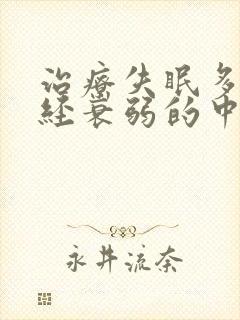 治疗失眠多
经衰弱的中
永井流奈